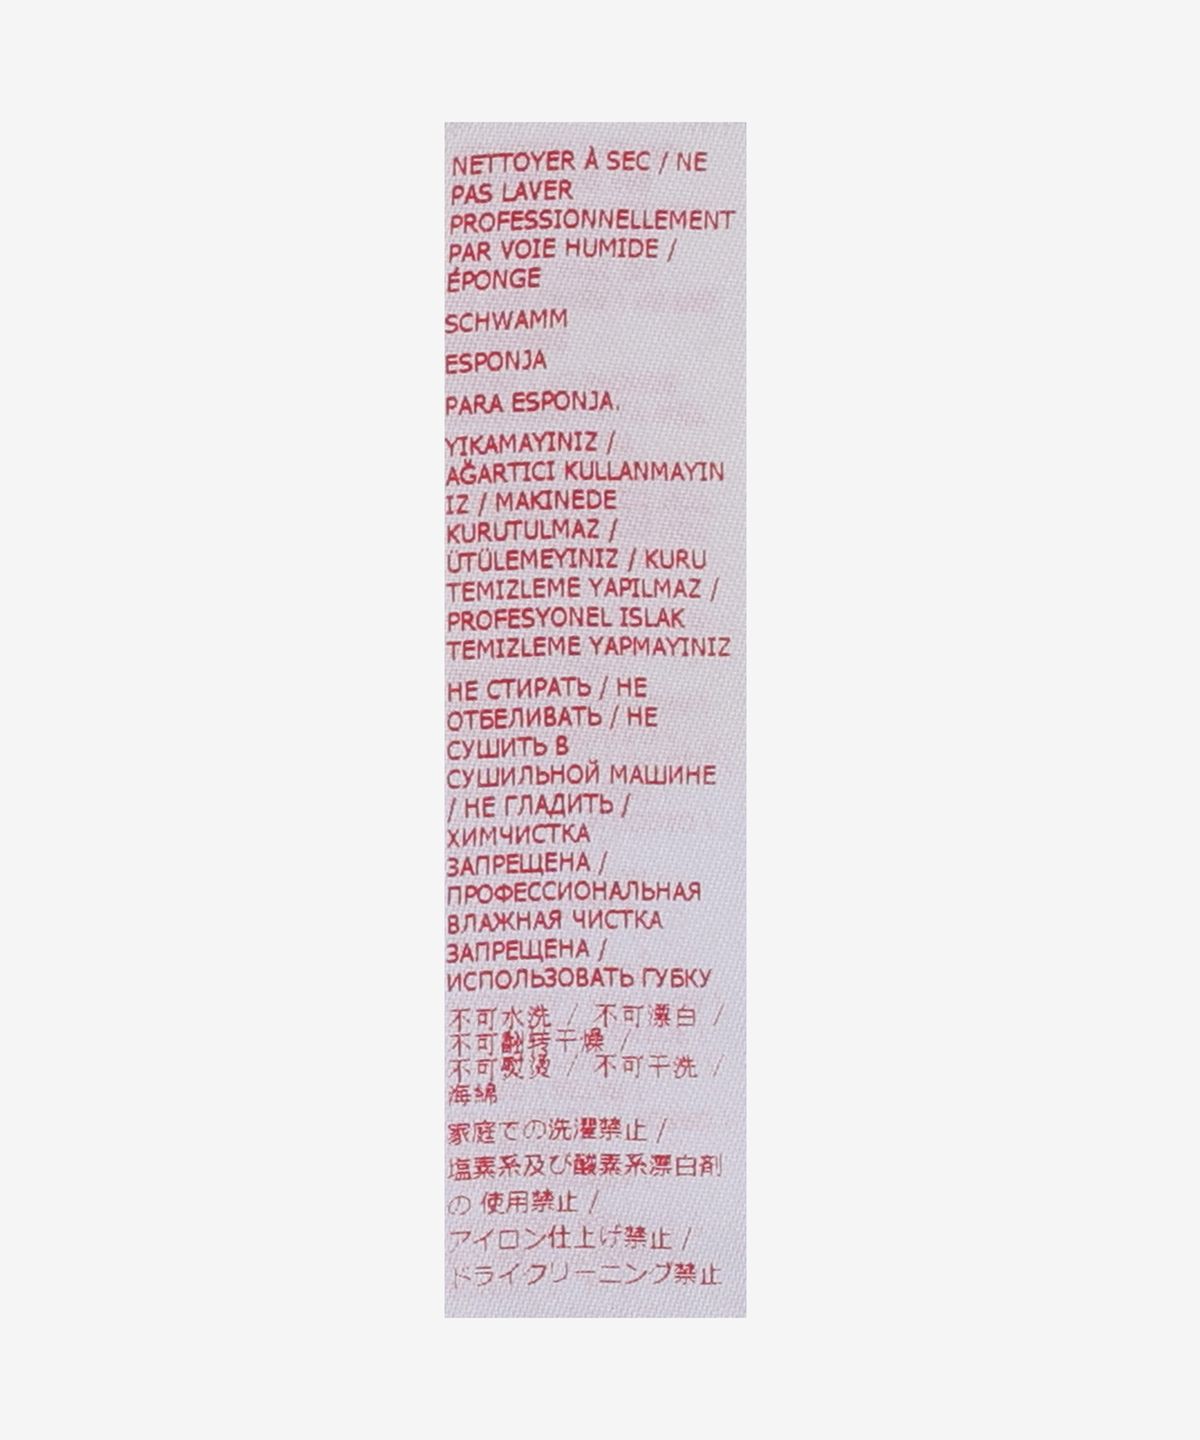 NETTOYER À SEC / NE
PAS LAVER
PROFESSIONNELLEMENT
PAR VOIE HUMIDE /
ÉPONGE
SCHWAMM
ESPONJA
PARA ESPONJA.
YIKAMAYINIZ /
AĞARTICI KULLANMAYIN
IZ / MAKINEDE
KURUTULMAZ /
ÜTÜLEMEYINIZ / KURU
TEMIZLEME YAPILMAZ /
PROFESYONEL ISLAK
TEMIZLEME YAPMAYINIZ
НЕ СТИРАТЬ / НЕ
ОТБЕЛИВАТЬ / НЕ
СУШИТЬ В
СУШИЛЬНОЙ МАШИНЕ
/ НЕ ГЛАДИТЬ /
ХИМЧИСТКА
ЗАПРЕЩЕНА /
ПРОФЕССИОНАЛЬНАЯ
ВЛАЖНАЯ ЧИСТКА
ЗАПРЕЩЕНА /
ИСПОЛЬЗОВАТЬ ГУБКУ
不可水洗 / 不可漂白 /
不可翻转干燥 /
不可熨烫 / 不可干洗 /
海绵
家庭での洗濯禁止 /
塩素系及び酸素系漂白剤
の 使用禁止 /
アイロン仕上げ禁止 /
ドライクリーニング禁止